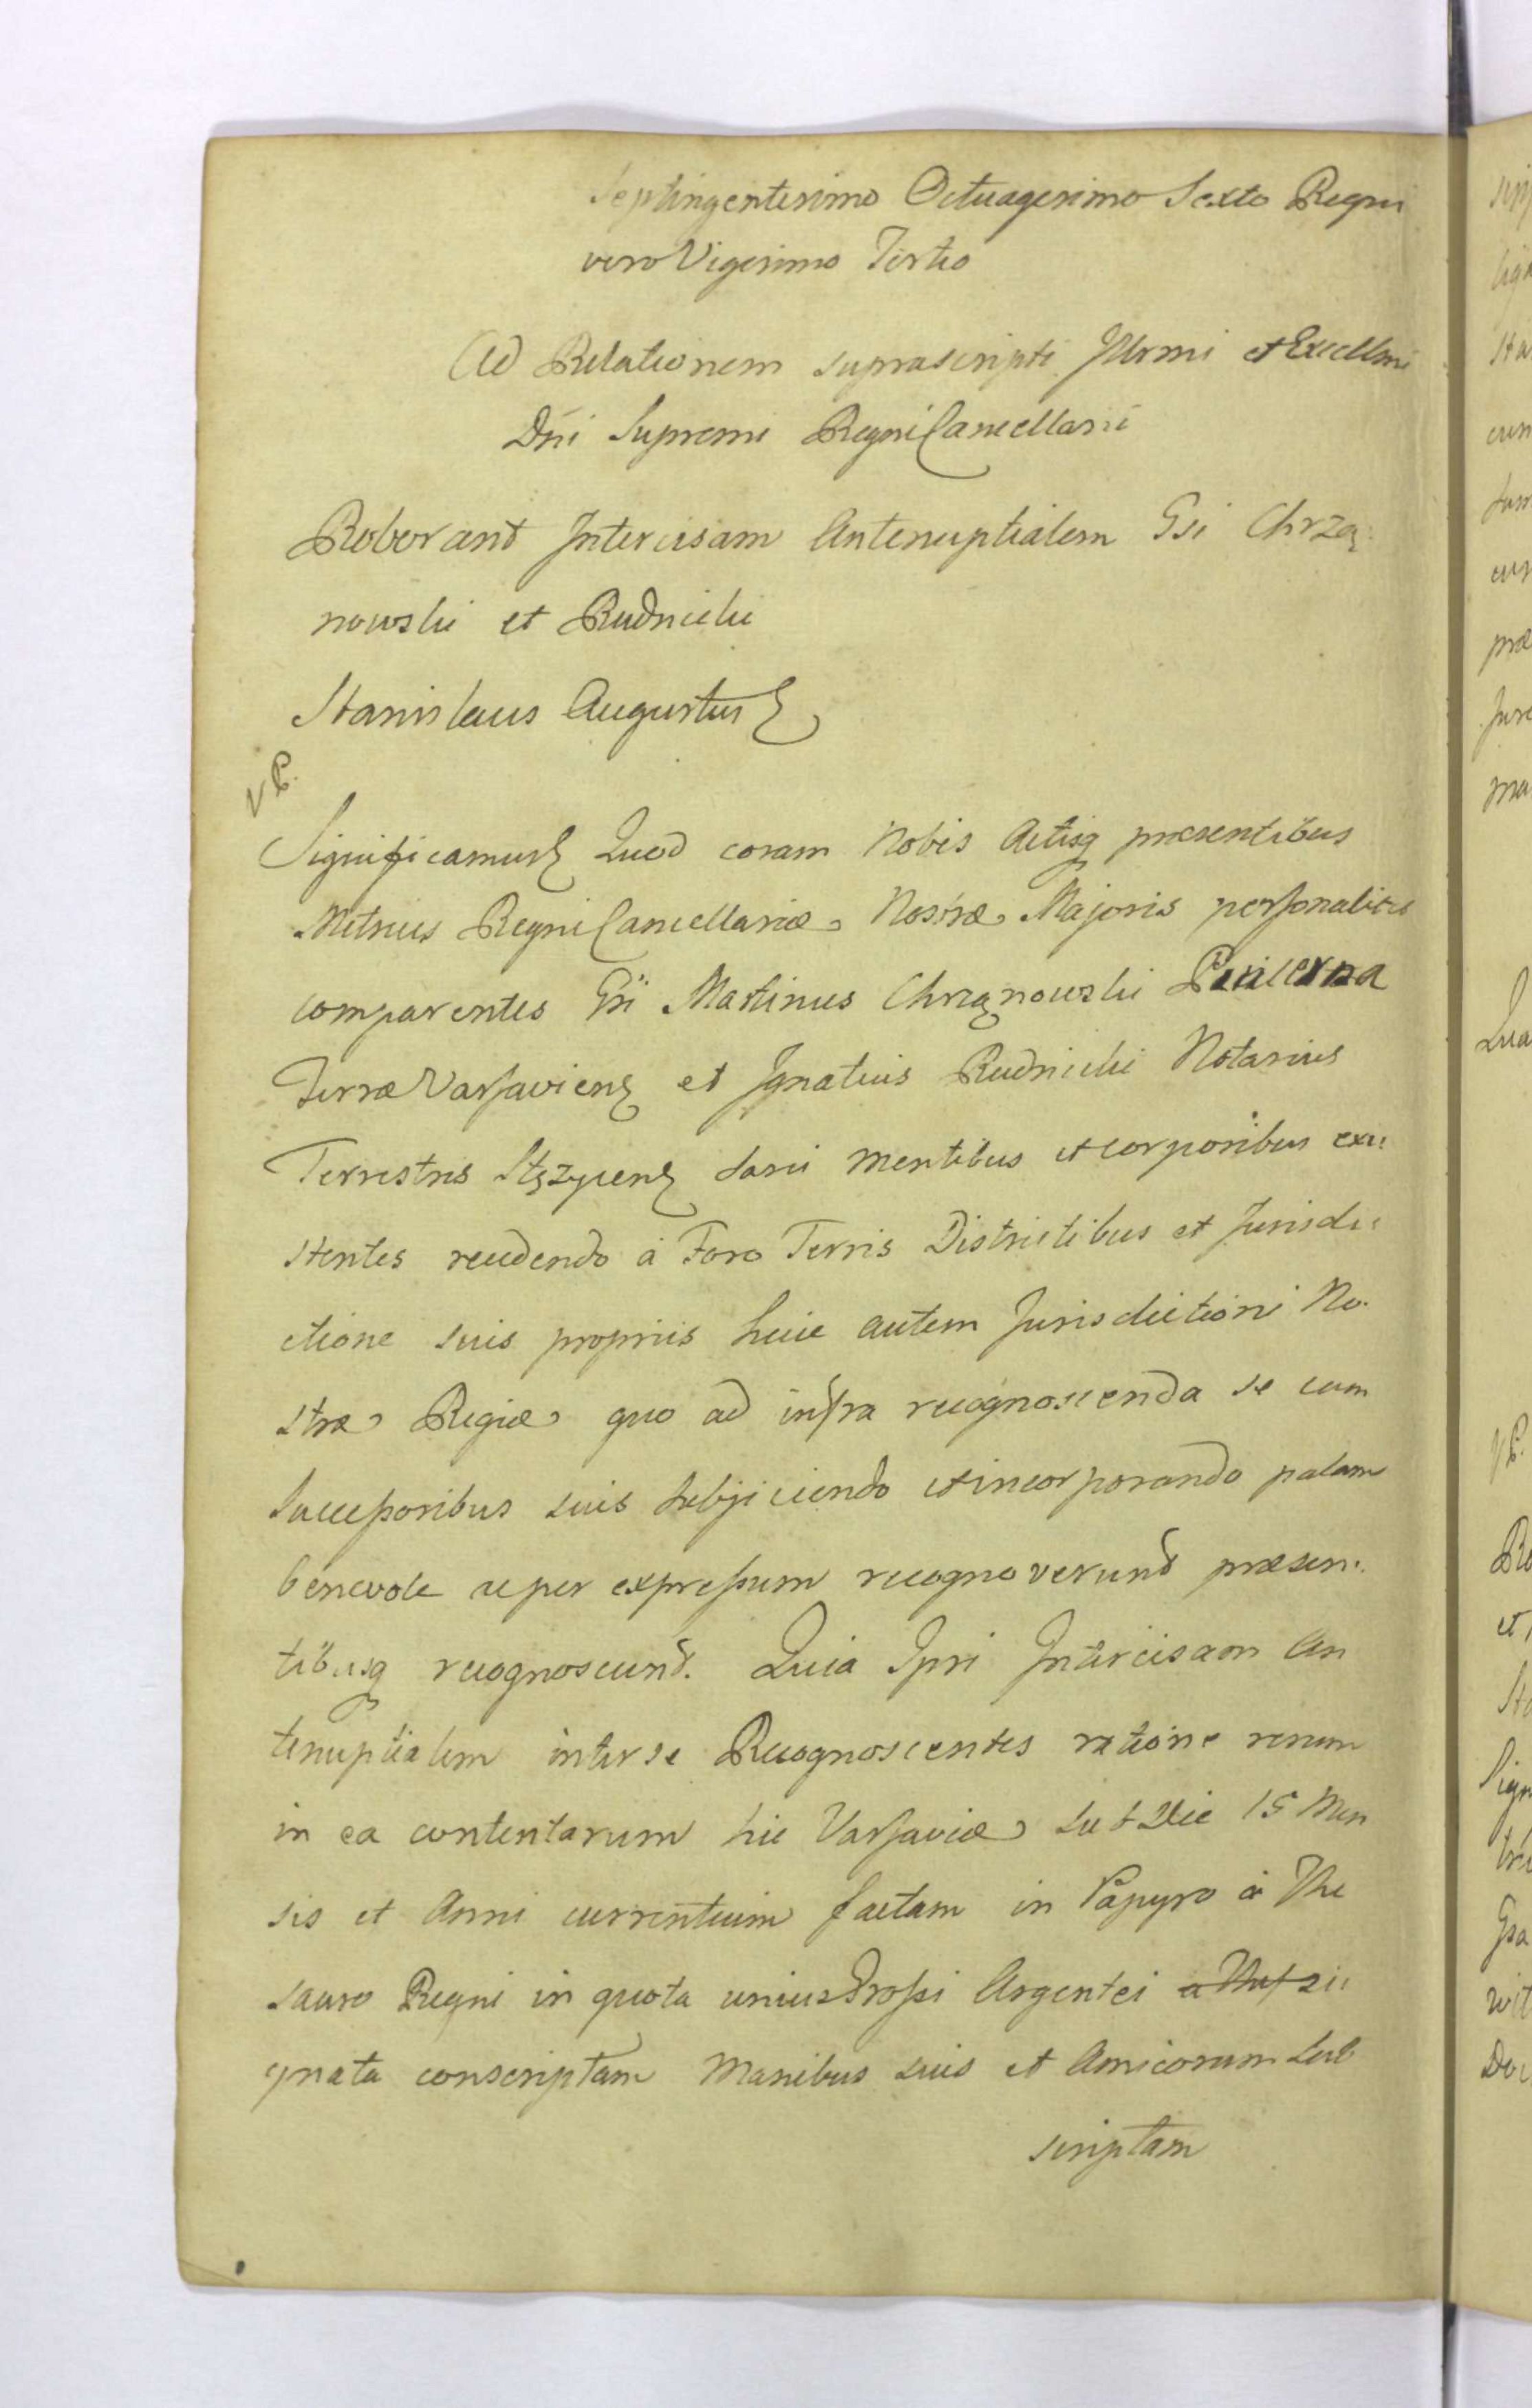 Septingentesimo Octuagesimo Sexto Regni
vero Vigesimo Tertio
Ad Relationem suprascripti Illrmi et Excellmi
Dni Supremi Regni Cancellarii
Roborant Intercisam Antenuptialem Gsi Chrzą
nowski et Rudnicki
Stanislaus Augustus
VR.
Significamus Quod coram Nobis Actisq praesentibus
Metrices Regni Cancellariae Nostrae Majoris personaliter
comparentes Gsi Martinus Chrząnowski Pincerna
Terrae Varsaviens et Ignatius Rudnicki Notarius
Terrestris Stęzyciens sani mentibus et corporibus exi:
stentes recedendo à Foro Terris Districtibus et Jurisdi:
ctione suis propriis huic autem Jurisdictioni No.
strae Regiae quo ad infra recognoscenda se cum
Successoribus suis subjiciendo et incorporando palam
benevole ac per expressum recognoverunt praesen:
tibusq recognoscunt. Quia Ipsi Intercisam An
tenuptialem inter se Recognoscentes ratione rerum
in ea contentarum hic Varsaviae sub Die 15 Men
sis et Anni currentium factam in Papyro à The
sauro Regni in quota unius Grossi Argentei si:
gnata conscriptam Manibus suis et Amicorum sub
scriptam